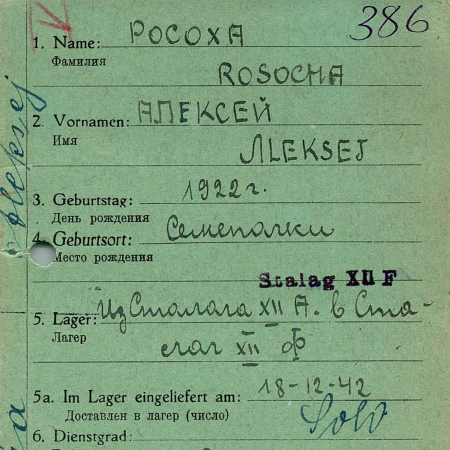 386
1. Name: РОСОХА
Фамилия
ROSOCHA
2. Vornamen: АЛЕКСЕЙ
Имя
ALEKSEJ
3. Geburtstag: 1922 г.
День рождения
4. Geburtsort: Семепалки
Место рождения
Stalag XII F
5. Lager: Из Сталага XII А. в Ста-
Лагер
лаг XII Ф
5a. Im Lager eingeliefert am: 18-12-42
Доставлен в лагер (число)
Sold
6. Dienstgrad:
Aleksej